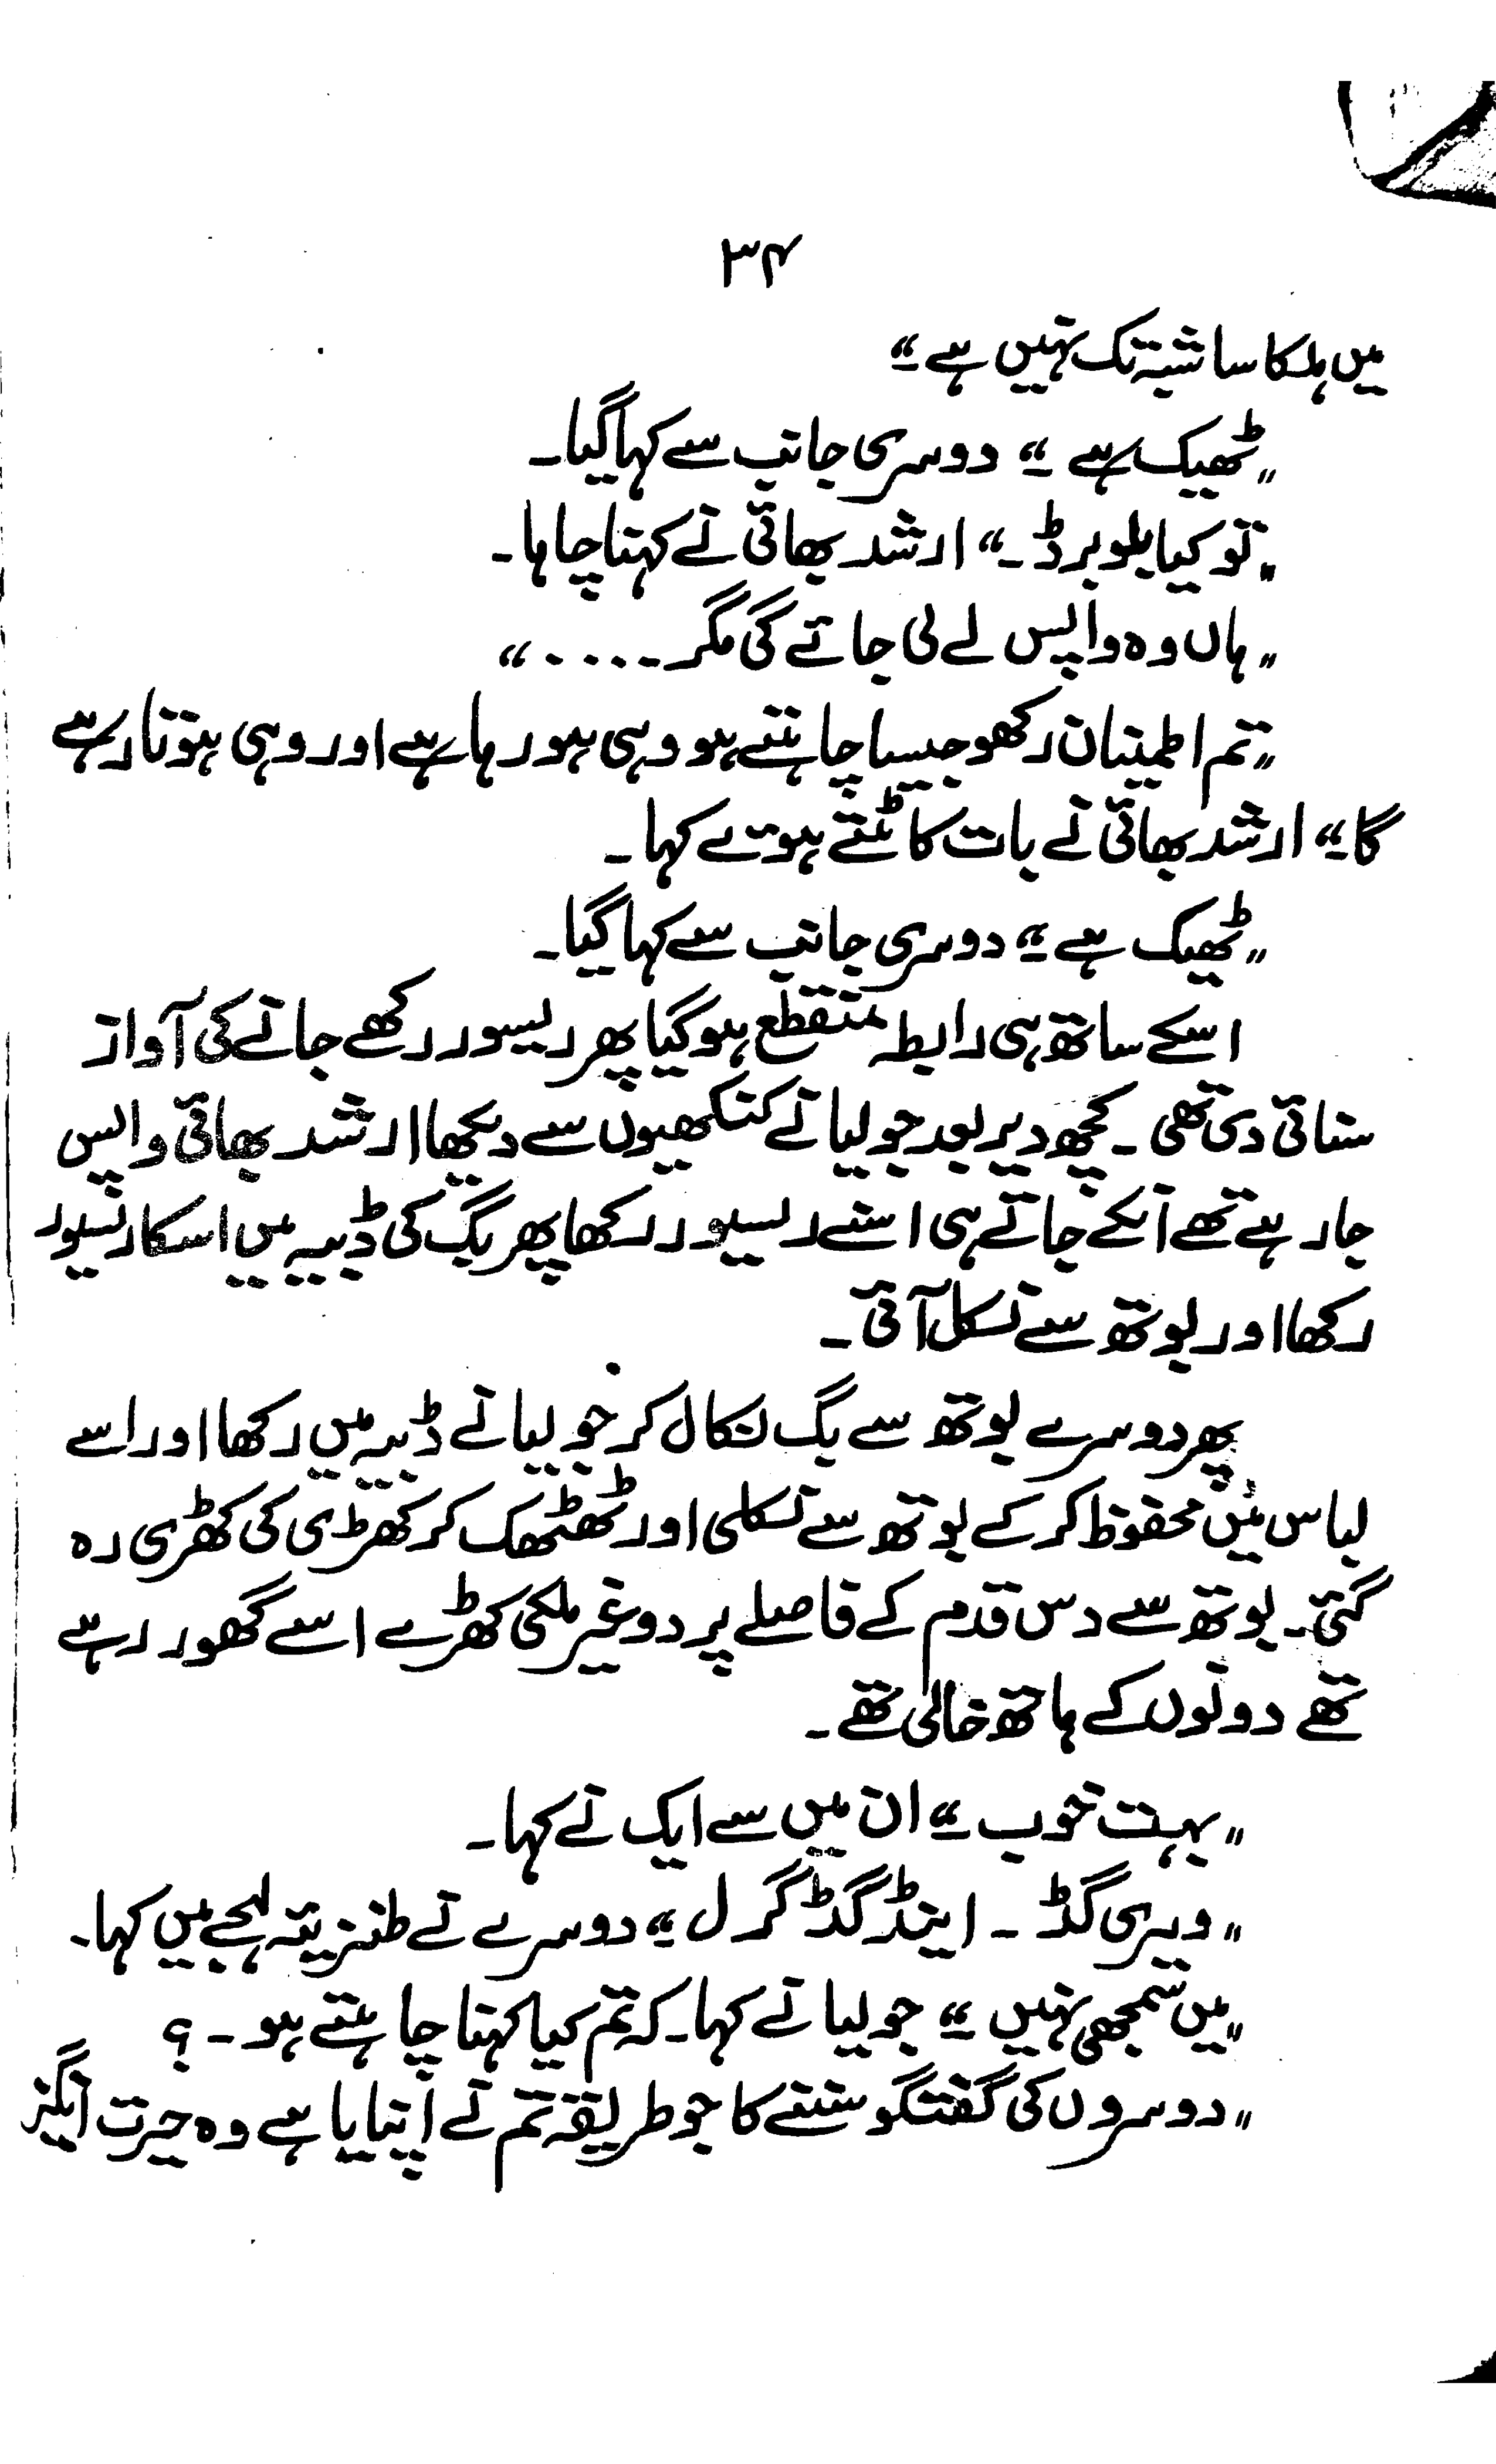 ۳۴
میں ہلکا سا شبہ تک نہیں ہے۔"
"ٹھیک ہے۔" دوسری جانب سے کہا گیا۔
"تو کیا بلو برڈ۔" ارشد بھائی نے کہنا چاہا۔
"ہاں وہ واپس لے لی جائے گی مگر۔...."
"تم اطمینان رکھو جیسا چاہتے ہو وہی ہو رہا ہے اور وہی ہوتا رہے
گا۔" ارشد بھائی نے بات کاٹتے ہوئے کہا۔
"ٹھیک ہے۔" دوسری جانب سے کہا گیا۔
اسکے ساتھ ہی رابطہ منقطع ہو گیا پھر ریسور رکھے جانے کی آواز
سنائی دی تھی۔ کچھ دیر بعد جولیا نے کنکھیوں سے دیکھا ارشد بھائی واپس
جا رہے تھے انکے جاتے ہی اسنے ریسیور رکھا پھر بگ کی ڈبیہ میں اسکا رسیور
رکھا اور بوتھ سے نکل آئی۔
پھر دوسرے بوتھ سے بگ نکال کر جولیا نے ڈبیہ میں رکھا اور اسے
لباس میں محفوظ کر کے بوتھ سے نکلی اور ٹھٹھک کر کھڑی کی کھڑی رہ
گئی۔ بوتھ سے دس قدم کے فاصلے پر دو غیر ملکی کھڑے اسے گھور رہے
تھے دونوں کے ہاتھ خالی تھے۔
"بہت خوب۔" ان میں سے ایک نے کہا۔
"ویری گڈ۔ اینڈ گڈ گرل۔" دوسرے نے طنزیہ لہجے میں کہا۔
"میں سمجھی نہیں۔" جولیا نے کہا۔ کہ تم کیا کہنا چاہتے ہو۔؟
"دوسروں کی گفتگو سننے کا جو طریقہ تم نے اپنایا ہے وہ حیرت انگیز